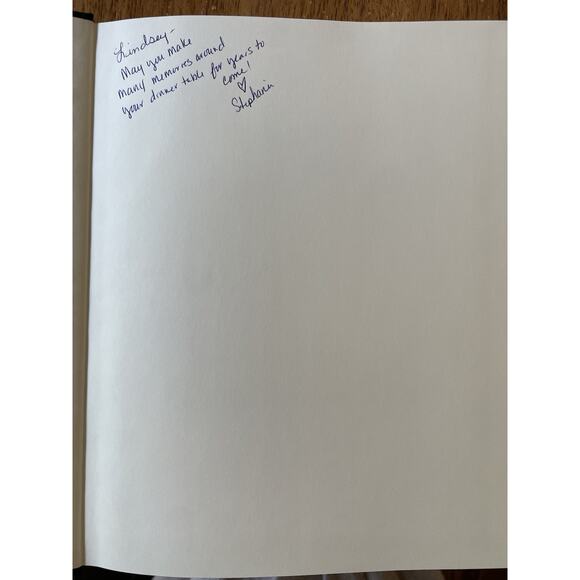 Lindsey-
May you make
many memories around
your dinner table for years to
come!
♡
Stephanie